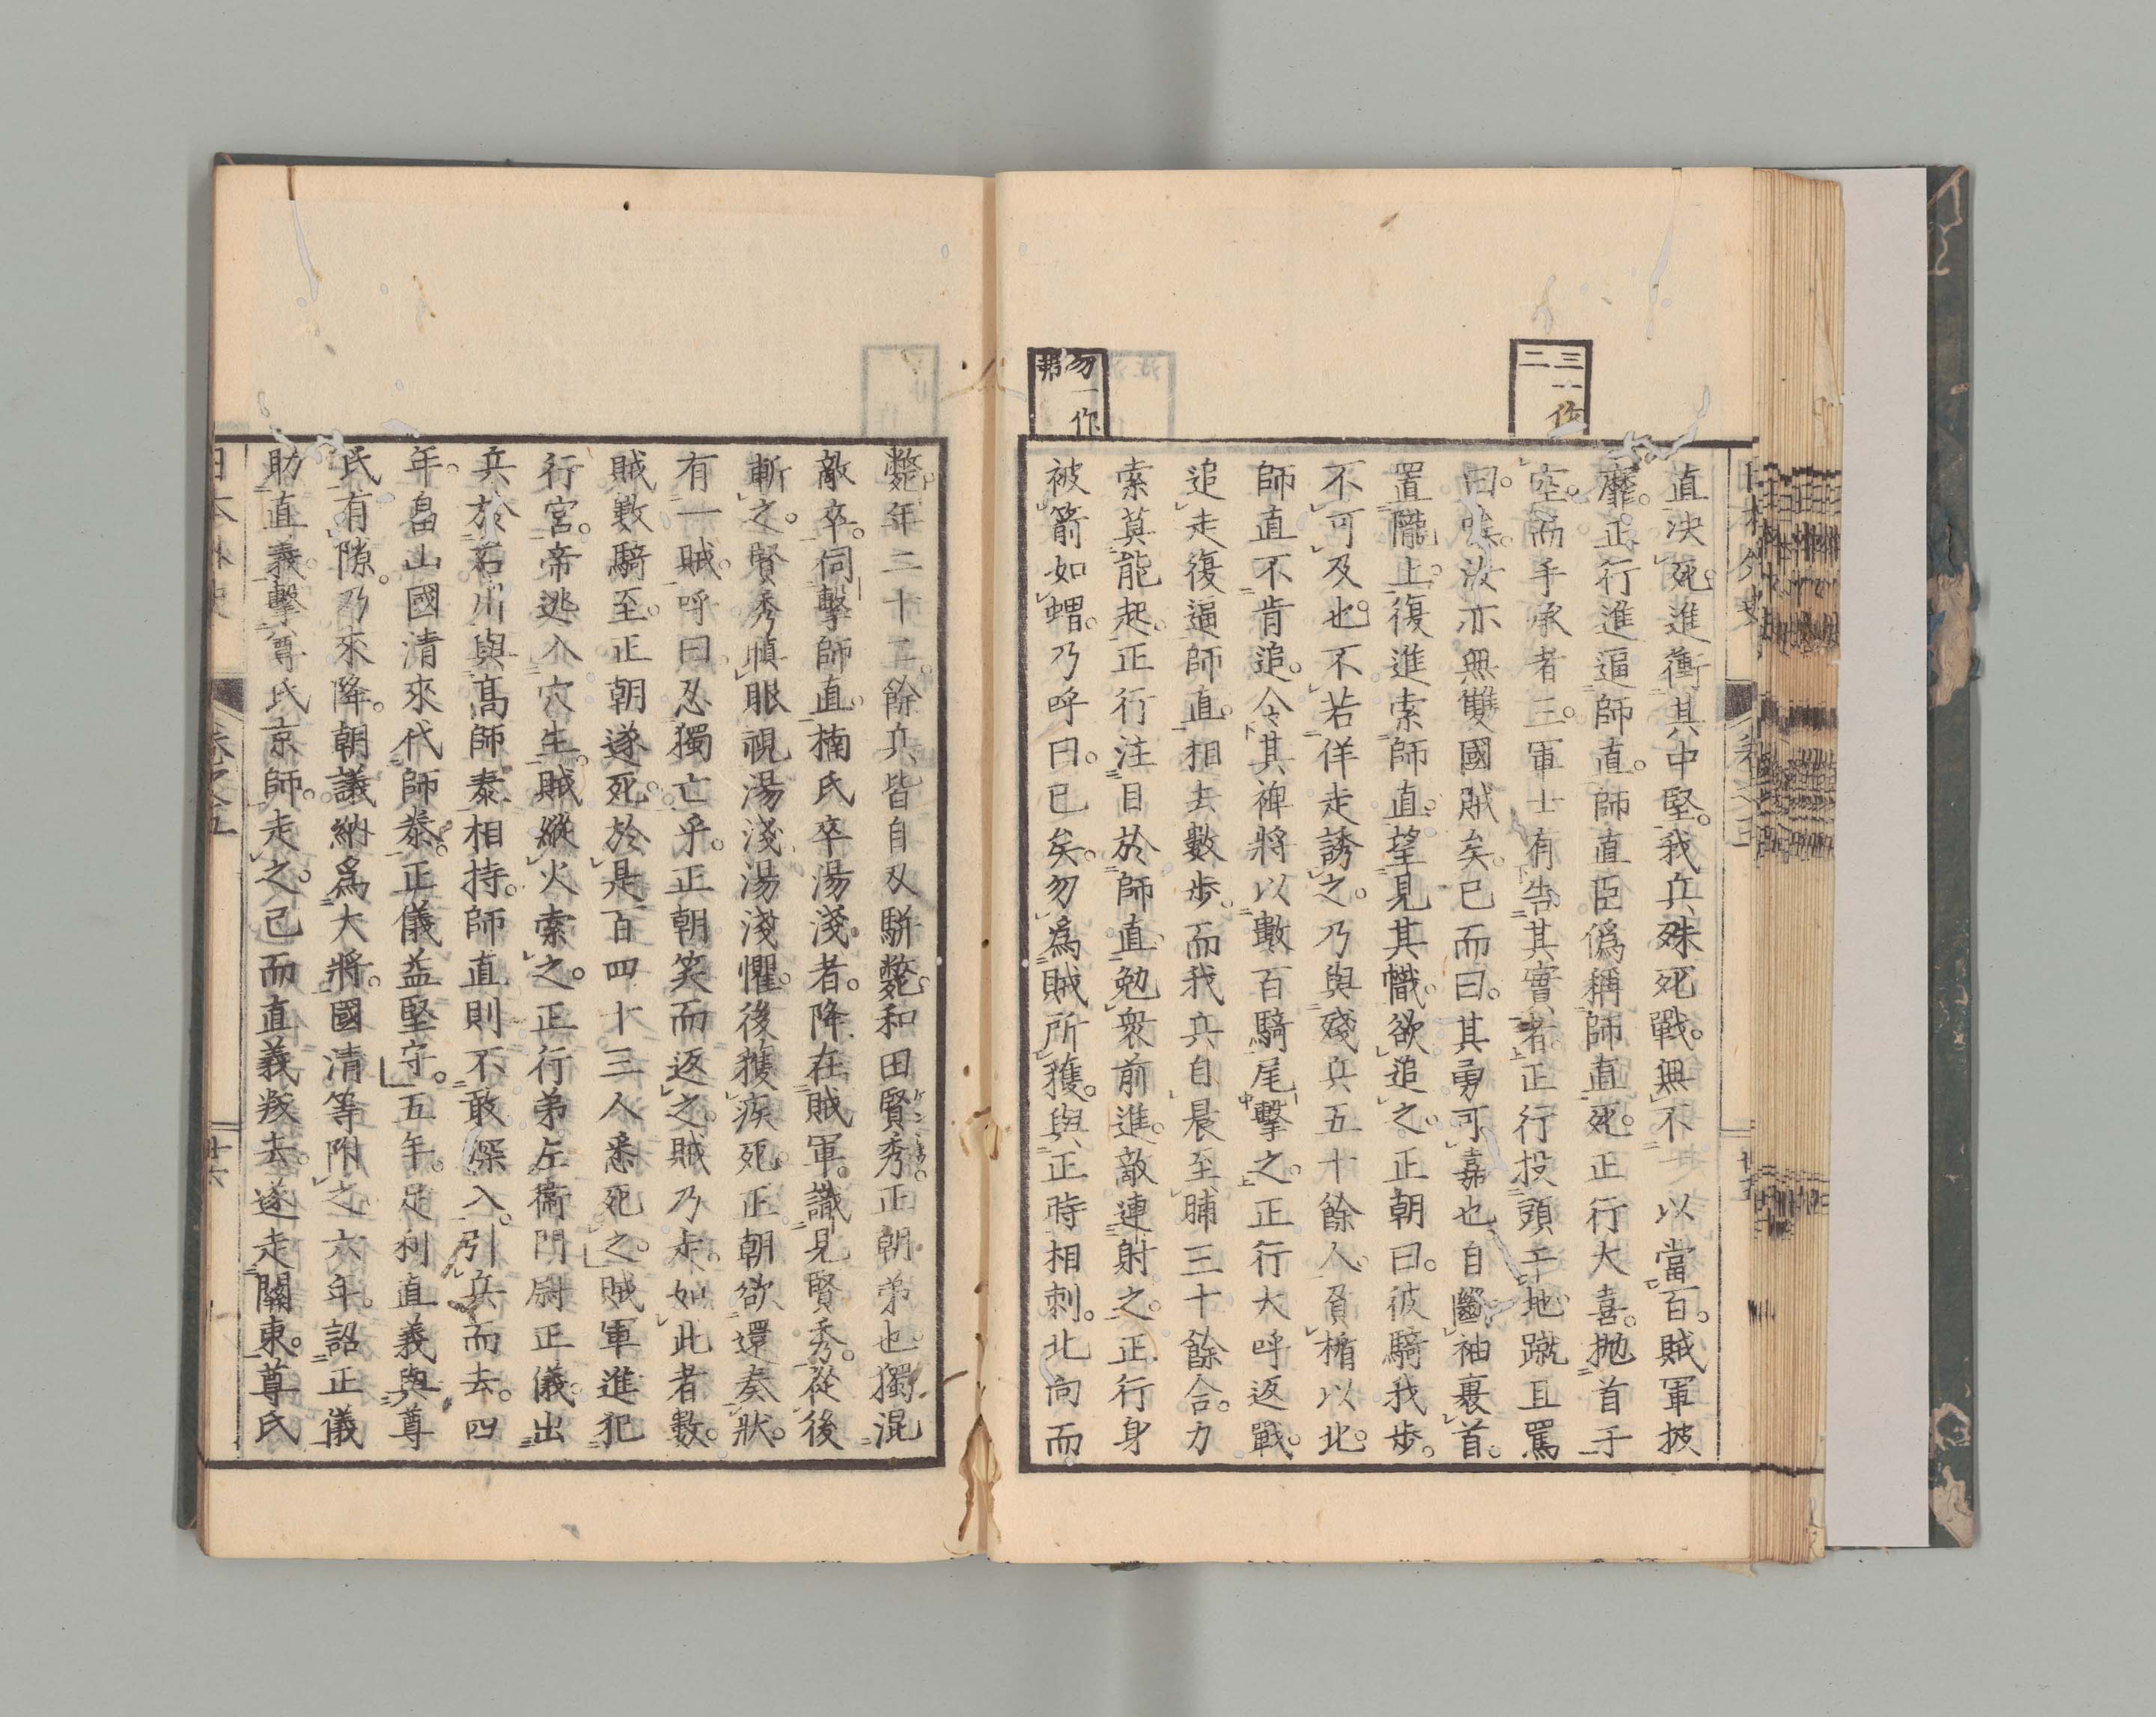 三一作
二
勿一作
弗
直決死進衝其中堅。我兵殊死戰。無不一以當百。賊軍披
靡。正行進逼師直。師直臣僞稱師直死。正行大喜。抛首于
空。而手承者三。軍士有告其實者。正行投頭于地蹴且罵
曰。唉。汝亦無雙國賊矣。已而曰。其勇可嘉也。自斷袖裹首。
置隴上。復進索師直。望見其幟。欲追之。正朝曰。彼騎我歩。
不可及也。不若佯走誘之。乃與殘兵五十餘人。負楯以北。
師直不肯追。令其裨將以數百騎尾擊之。正行大呼返戰。
追走復逼師直。相去數歩。而我兵自晨至晡三十餘合。力
索莫能起。正行注目於師直。勉衆前進。敵連射之。正行身
被箭如蝟。乃呼曰。已矣。勿爲賊所獲。與正時相刺。北向而
斃。年二十二。餘兵皆自刄駢斃。和田賢秀正朝弟也。獨混
敵卒。伺擊師直。楠氏卒湯淺者。降在賊軍。識見賢秀。從後
斬之。賢秀愼眼視湯淺。湯淺懼。後獲疾死。正朝欲還奏狀。
有一賊。呼曰。忍獨亡乎。正朝笑而返之。賊乃走。如此者數。
賊數騎至。正朝遂死。於是百四十三人悉死之。賊軍進犯
行宮。帝逃入穴生。賊縱火索之。正行弟左衞門尉正儀。出
兵於石川與高師泰相持。師直則不敢深入。引兵而去。四
年。畠山國清來代師泰。正儀益堅守。五年。足利直義與尊
氏有隙。乃來降。朝議納爲大將。國清等附之。六年。詔正儀
助直義。擊尊氏京師。走之。已而直義叛去。遂走關東。尊氏
日本外史 卷之五 廿六